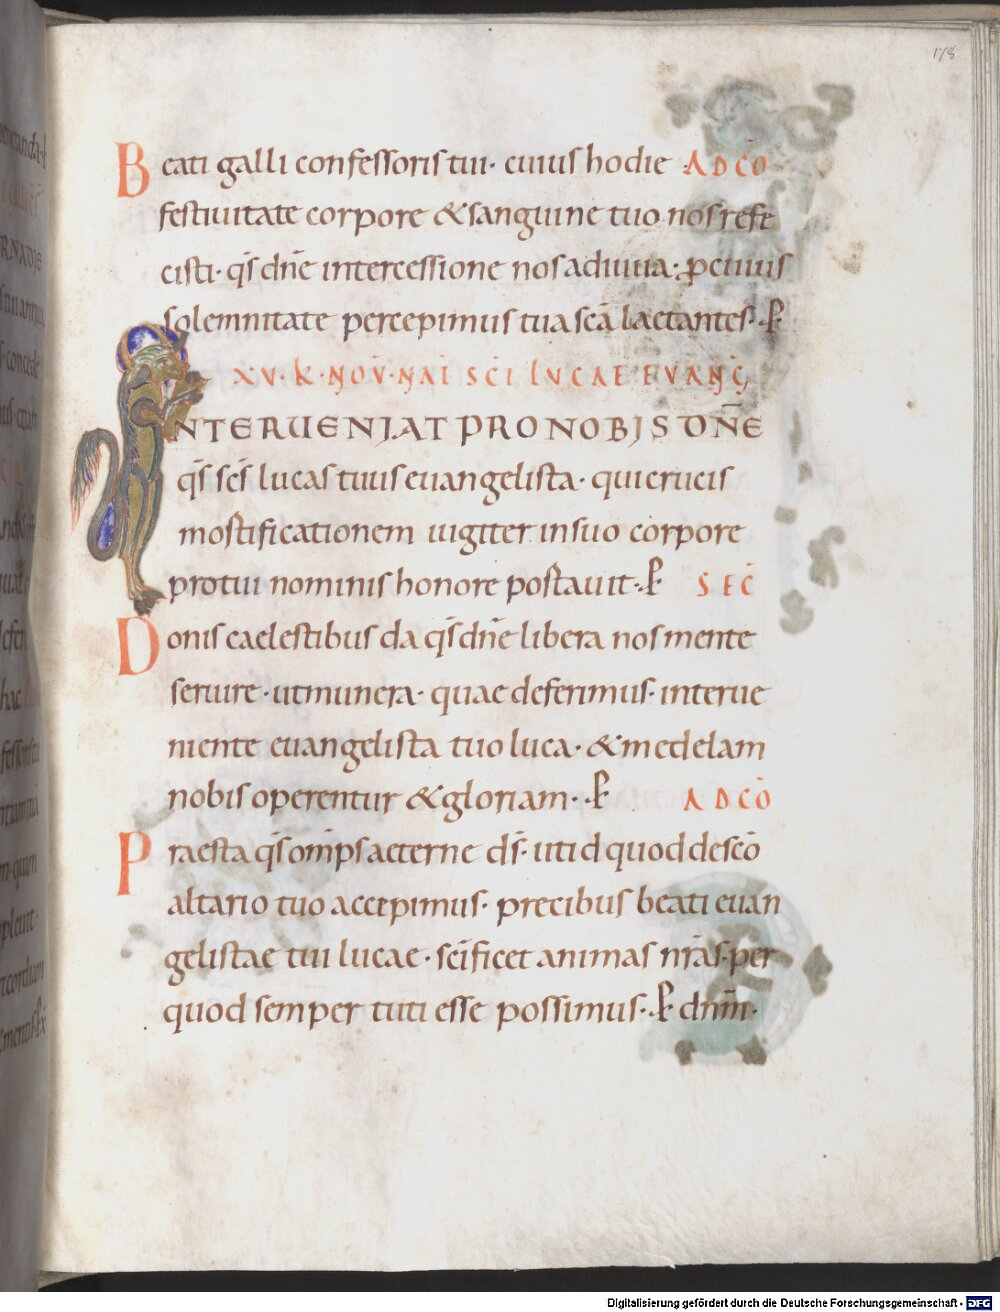 178
Beati galli confessoris tui· cuius hodie ADCŌ
festiuitate corpore &sanguine tuo nos refe
cisti· qs̄ dn̄e intercessione nos adiuua· ꝑ cuius
solemnitate percepimus tua scā laetantes·ꝑ
XV·K·NOV̄·NAT̄ SC̄I LVCAE EVANḠ
INTERUENIAT PRO NOBIS DN̄E
qs̄ scs̄ lucas tuus euangelista· qui crucis
mortificationem iugiter in suo corpore
pro tui nominis honore portauit·ꝑ SEC̄
Donis caelestibus da qs̄ dn̄e libera nos mente
seruire· ut munera· quae deferimus· interue
niente euangelista tuo luca· &medelam
nobis operentur &gloriam· ꝑ ADCŌ
Praesta qs̄ omp̄s aeterne ds̄· ut id quod de scō
altario tuo accepimus· precibus beati euan
gelistae tui lucae· sc̄ificet animas nr̄as· per
quod semper tuti esse possimus·ꝑ dnm̄·
Digitalisierung gefördert durch die Deutsche Forschungsgemeinschaft - DFG